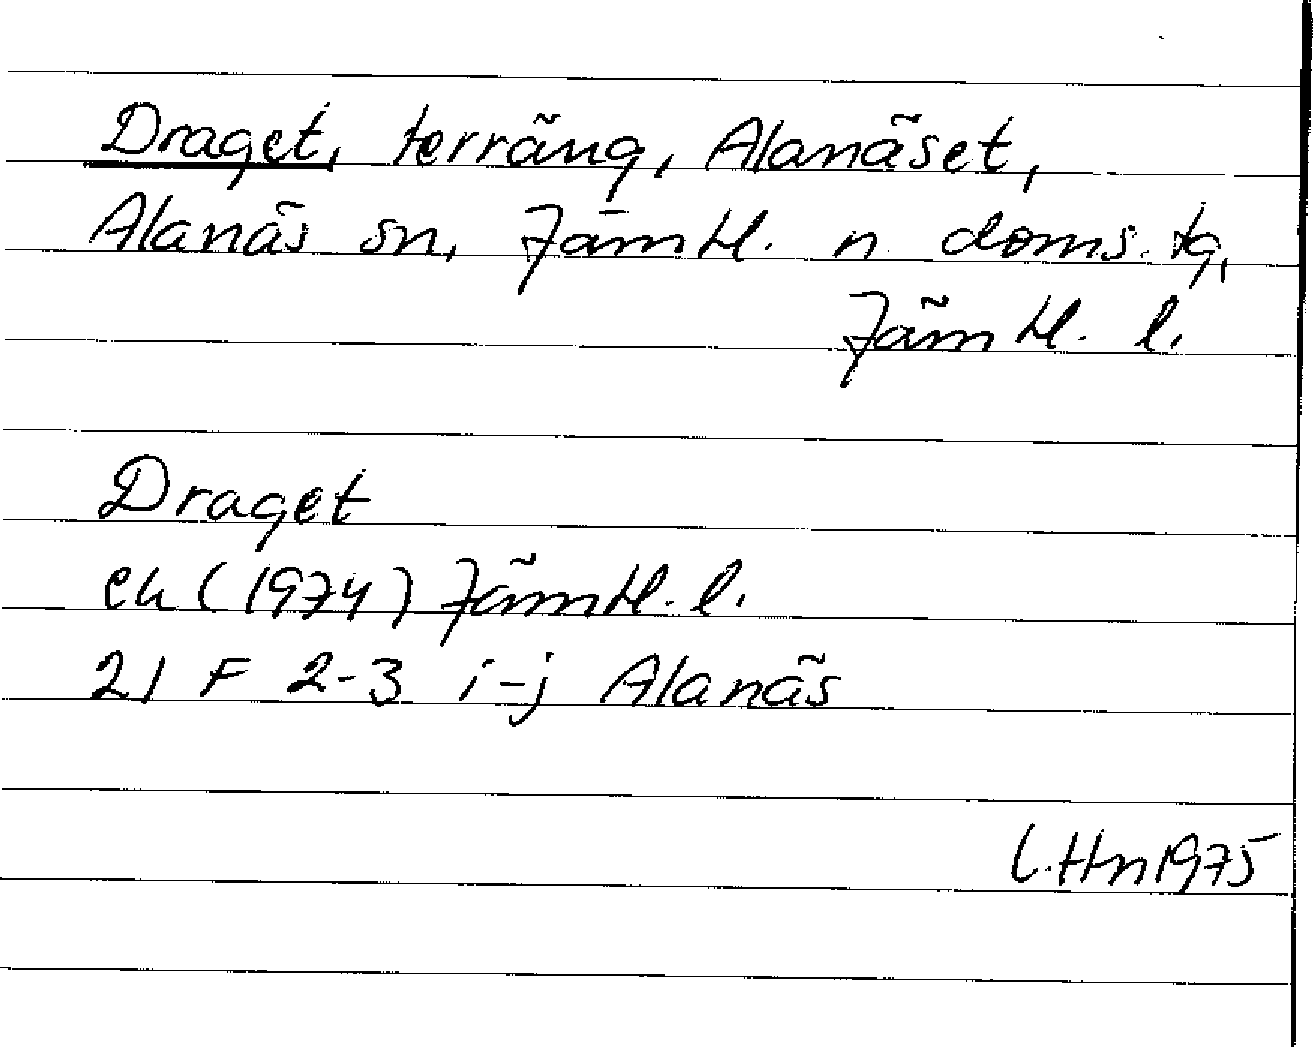 Draget, terräng, Alanäset,
Alanäs sn, Jämtl. n. doms. tg,
Jämtl. l.
Draget
ek (1974) Jämtl. l.
21 F 2-3 i-j Alanäs
L.Hn 1975